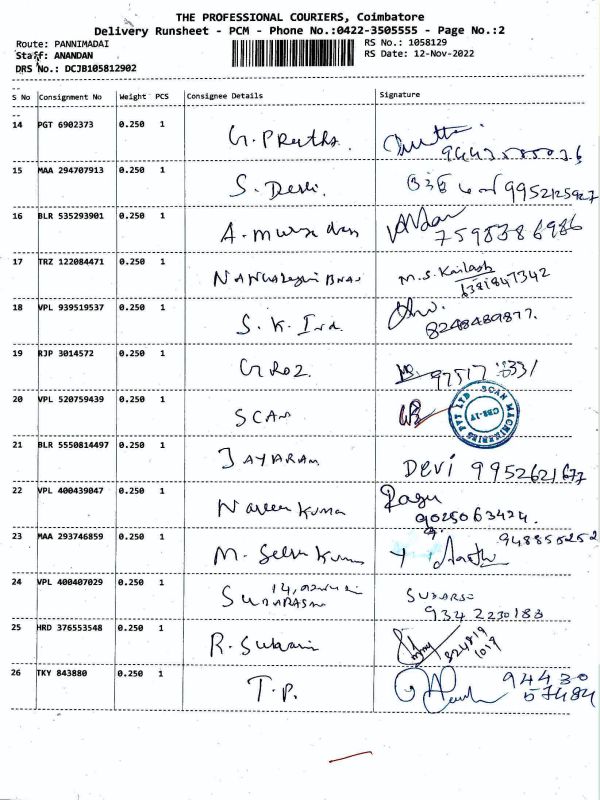 THE PROFESSIONAL COURIERS, Coimbatore
Delivery Runsheet - PCM - Phone No.:0422-3505555 - Page No.:2
Route: PANNIMADAI
RS No.: 1058129
Staff: ANANDAN
RS Date: 12-Nov-2022
DRS No.: DCJB105812902
S No Consignment No Weight PCS Consignee Details Signature
14 PGT 6902373 0.250 1 G. Preetha
15 MAA 294707913 0.250 1 S. Devi.
16 BLR 535293901 0.250 1 A. 7598386986
17 TRZ 122084471 0.250 1 M.S. Kailash
6381847342
18 VPL 939519537 0.250 1 S. K. Ind.
8248489877.
19 RJP 3014572 0.250 1 G Roz
20 VPL 520759439 0.250 1 SCAN
SCAN MACHINERIES PVT LTD
CBE-17
21 BLR 5550814497 0.250 1 JAYARAM Devi 9952621677
22 VPL 400439047 0.250 1 Naveen Kumar Ragu
9025063424.
23 MAA 293746859 0.250 1 M. Selva Kumar
24 VPL 400407029 0.250 1
9342230183
25 HRD 376553548 0.250 1 R.
824819
1019
26 TKY 843880 0.250 1 T.P. 94430
57484